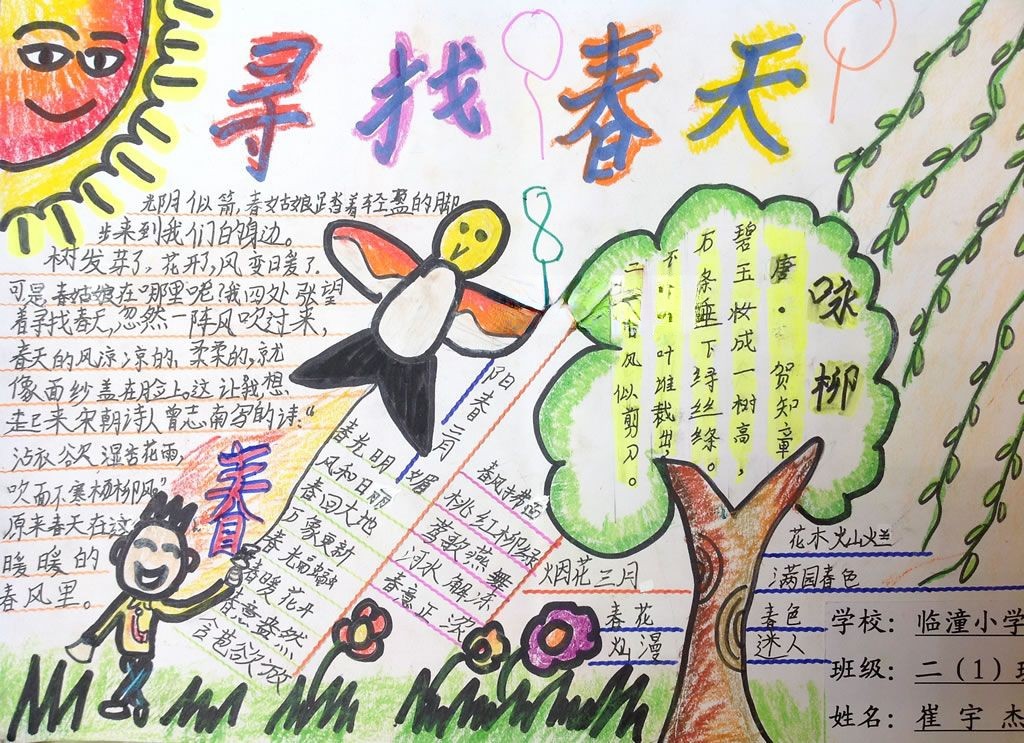 寻找春天
光阴似箭,春姑娘踏着轻盈的脚
步来到我们的身边。
树发芽了,花开了,风变日暖了.
可是春姑娘在哪里呢?我四处张望
着寻找春天,忽然一阵风吹过来,
春天的风凉凉的、柔柔的,就
像面纱盖在脸上。这让我想
起来宋朝诗人曾志南写的诗:“
沾衣欲湿杏花雨,
吹面不寒杨柳风。”
原来春天在这
暖暖的
春风里。
春
阳春二月
春光明媚
风和日丽
春回大地
万象更新
春暖花开
春意盎然
含苞欲放
春风拂面
桃红柳绿
莺歌燕舞
河水解冻
春意正浓
咏柳
唐·贺知章
碧玉妆成一树高,
万条垂下绿丝绦。
不叶谁裁出,
二月春风似剪刀。
烟花三月
春花
灿漫
花木灿烂
满园春色
春色
迷人
学校:临潼小学
班级:二(1)班
姓名:崔宇杰